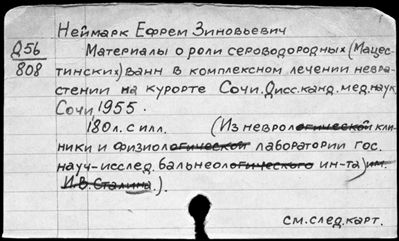 Неймарк Ефрем Зиновьевич
Д56
808
Материалы о роли сероводородных (Мацес-
тинских) ванн в комплексном лечении невра-
стении на курорте Сочи. Дисс. канд. мед. наук
Сочи, 1955.
180 л. с илл. (Из неврологической кли-
ники и физиологической лаборатории Гос.
науч-исслед. бальнеологического ин-та) им.
И.В. Сталина.).
см. след. карт.